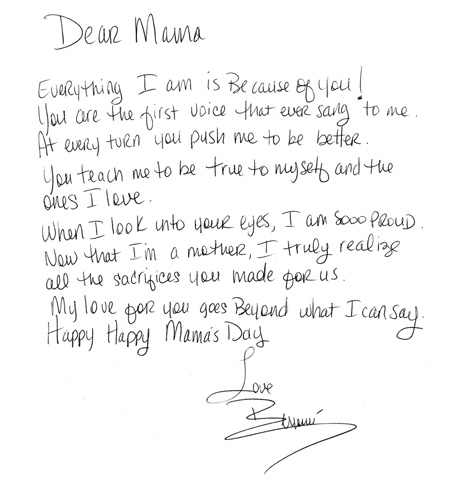 Dear Mama
Everything I am is Because of you!
You are the first voice that ever sang to me.
At every turn you push me to be better.
You teach me to be true to myself and the
ones I love.
When I look into your eyes, I am sooo PROUD.
Now that I'm a mother, I truly realize
all the sacrifices you made for us.
My love for you goes Beyond what I can say.
Happy Happy Mama's Day
Love